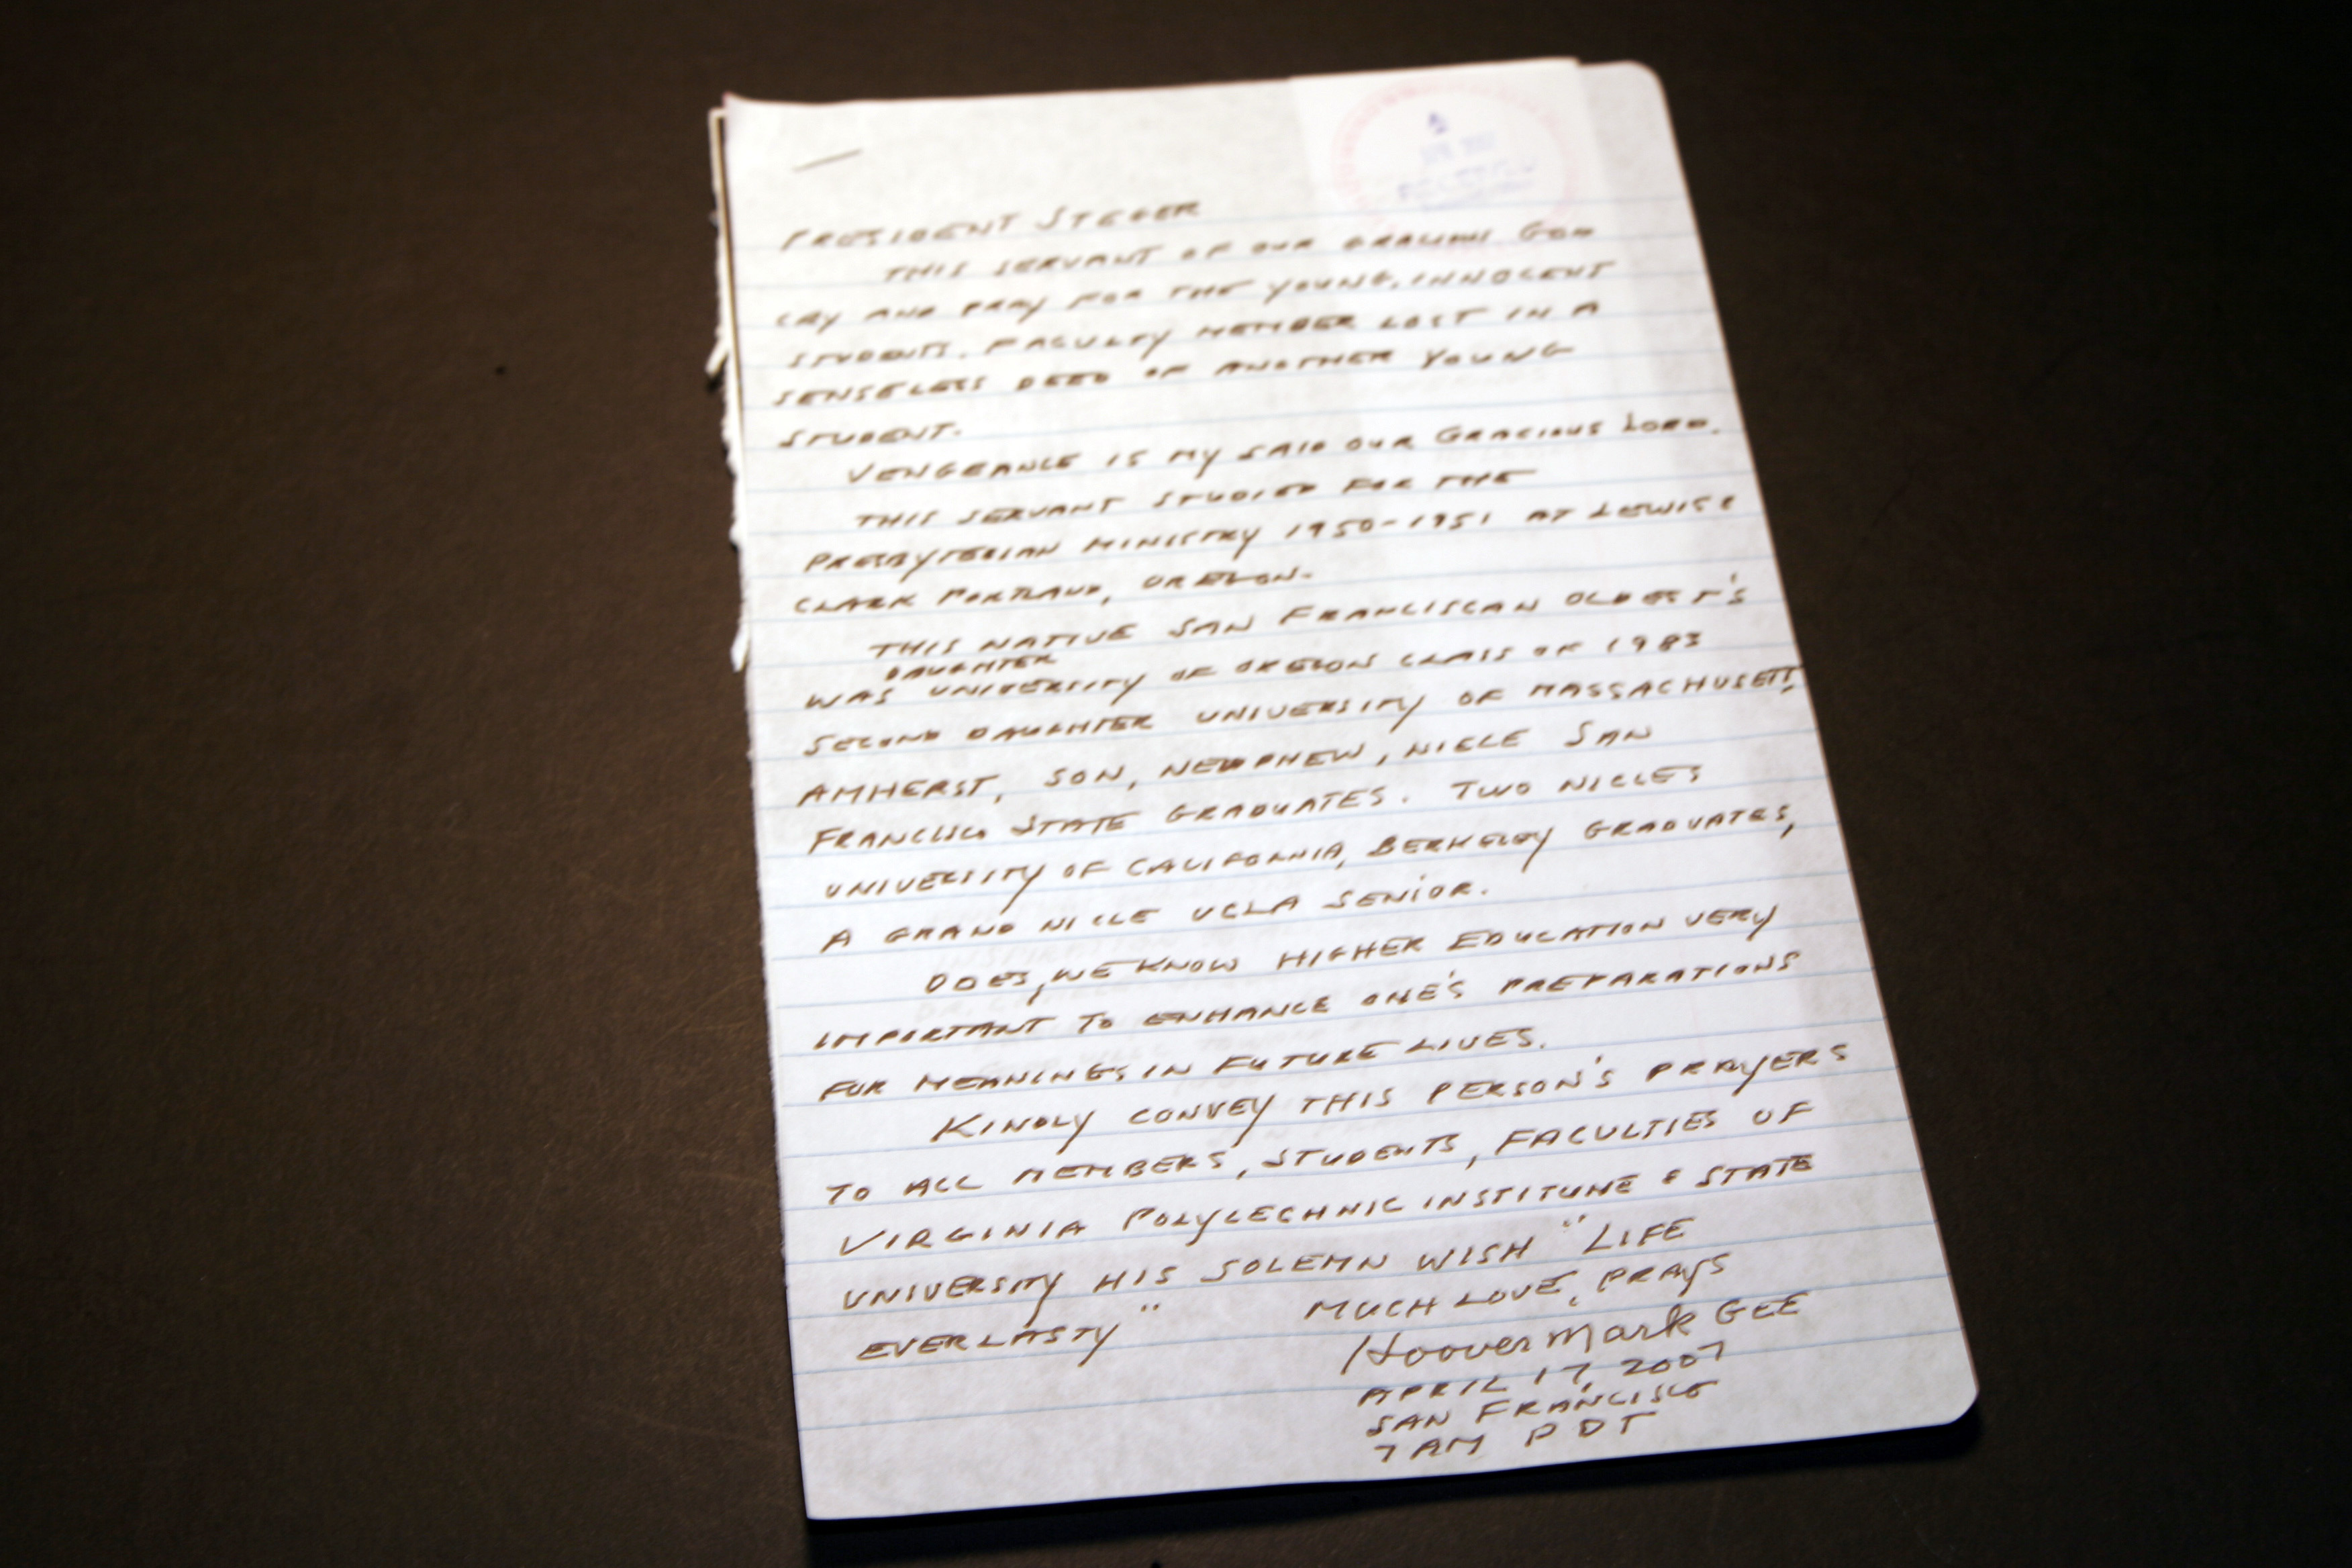 PRESIDENT STEGER
THIS SERVANT OF OUR GRACIOUS GOD
CRY AND PRAY FOR THE YOUNG, INNOCENT
STUDENTS, FACULTY MEMBER LOST IN A
SENSELESS DEED OF ANOTHER YOUNG
STUDENT.
VENGEANCE IS MY SAID OUR GRACIOUS LORD.
THIS SERVANT STUDIED FOR THE
PRESBYTERIAN MINISTRY 1950-1951 AT LEWIS &
CLARK PORTLAND, OREGON.
THIS NATIVE SAN FRANCISCAN OLDEST'S
DAUGHTER
WAS UNIVERSITY OF OREGON CLASS OF 1983
SECOND DAUGHTER UNIVERSITY OF MASSACHUSETTS,
AMHERST, SON, NEPHEW, NIECE SAN
FRANCISCO STATE GRADUATES. TWO NIECES
UNIVERSITY OF CALIFORNIA, BERKELEY GRADUATES,
A GRAND NIECE UCLA SENIOR.
DOES, WE KNOW HIGHER EDUCATION VERY
IMPORTANT TO ENHANCE ONE'S PREPARATIONS
FOR MEANINGS IN FUTURE LIVES.
KINDLY CONVEY THIS PERSON'S PRAYERS
TO ALL MEMBERS, STUDENTS, FACULTIES OF
VIRGINIA POLYTECHNIC INSTITUTE & STATE
UNIVERSITY HIS SOLEMN WISH "LIFE
EVERLASTY"
MUCH LOVE, PRAYS
Hoover Mark GEE
APRIL 17, 2007
SAN FRANCISCO
7 AM PDT